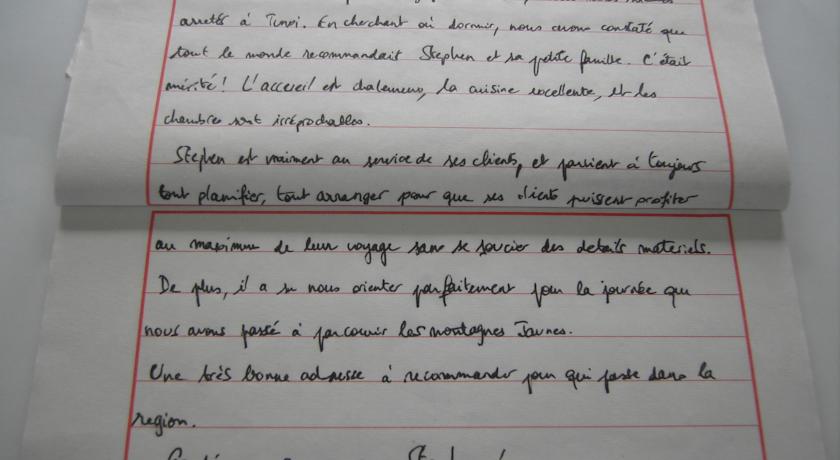 arretés à Tunxi. En cherchant où dormir, nous avons constaté que
tout le monde recommandait Stephen et sa petite famille. C'était
mérité! L'accueil est chaleureux, la cuisine excellente, et les
chambres sont irréprochables.
Stephen est vraiment au service de ses clients, et parvient à toujours
tout planifier, tout arranger pour que ses clients puissent profiter
au maximum de leur voyage sans se soucier des details materiels.
De plus, il a su nous orienter parfaitement pour la journée que
nous avons passé à parcourir les montagnes Jaunes.
Une très bonne adresse à recommander pour qui passe dans la
region.